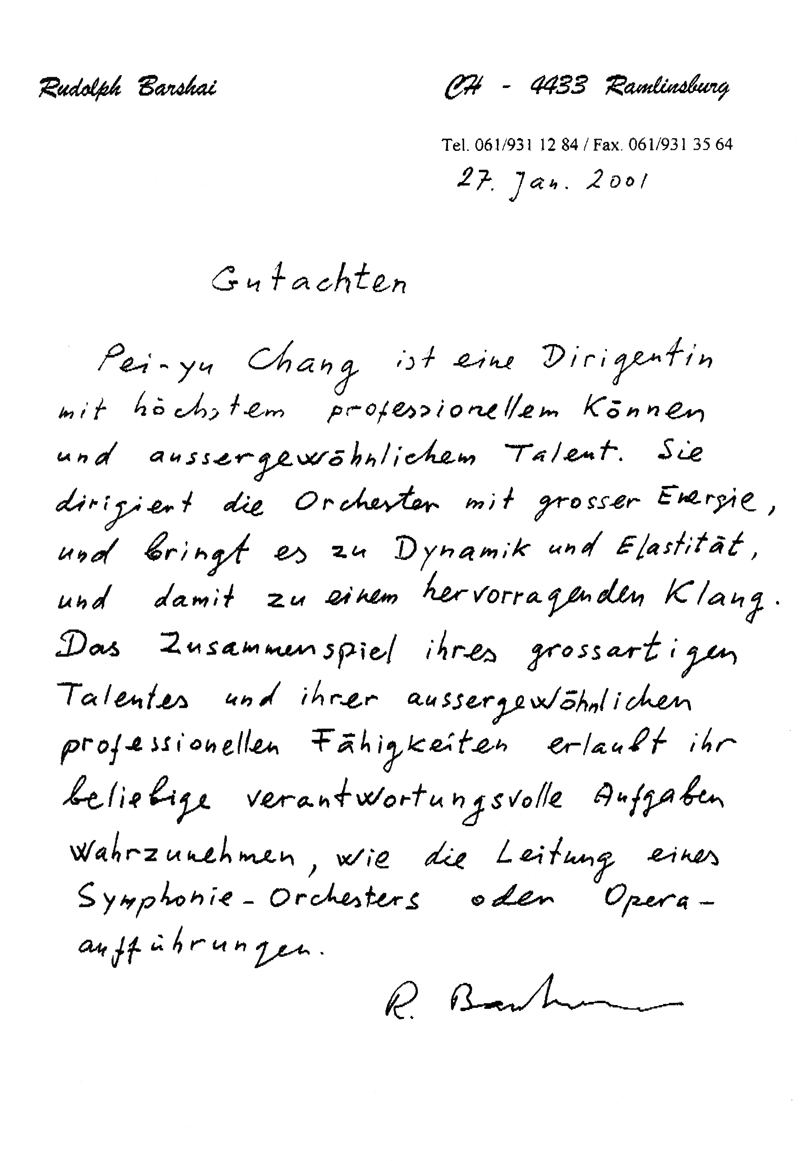 Rudolph Barshai
CH - 4433 Ramlinsburg
Tel. 061/931 12 84 / Fax. 061/931 35 64
27. Jan. 2001
Gutachten
Pei-yu Chang ist eine Dirigentin
mit höchstem professionellem Können
und aussergewöhnlichem Talent. Sie
dirigiert die Orchester mit grosser Energie,
und bringt es zu Dynamik und Elastität,
und damit zu einem hervorragenden Klang.
Das Zusammenspiel ihres grossartigen
Talentes und ihrer aussergewöhnlichen
professionellen Fähigkeiten erlaubt ihr
beliebige verantwortungsvolle Aufgaben
wahrzunehmen, wie die Leitung eines
Symphonie-Orchesters oder Opera-
aufführungen.
R. Barshai